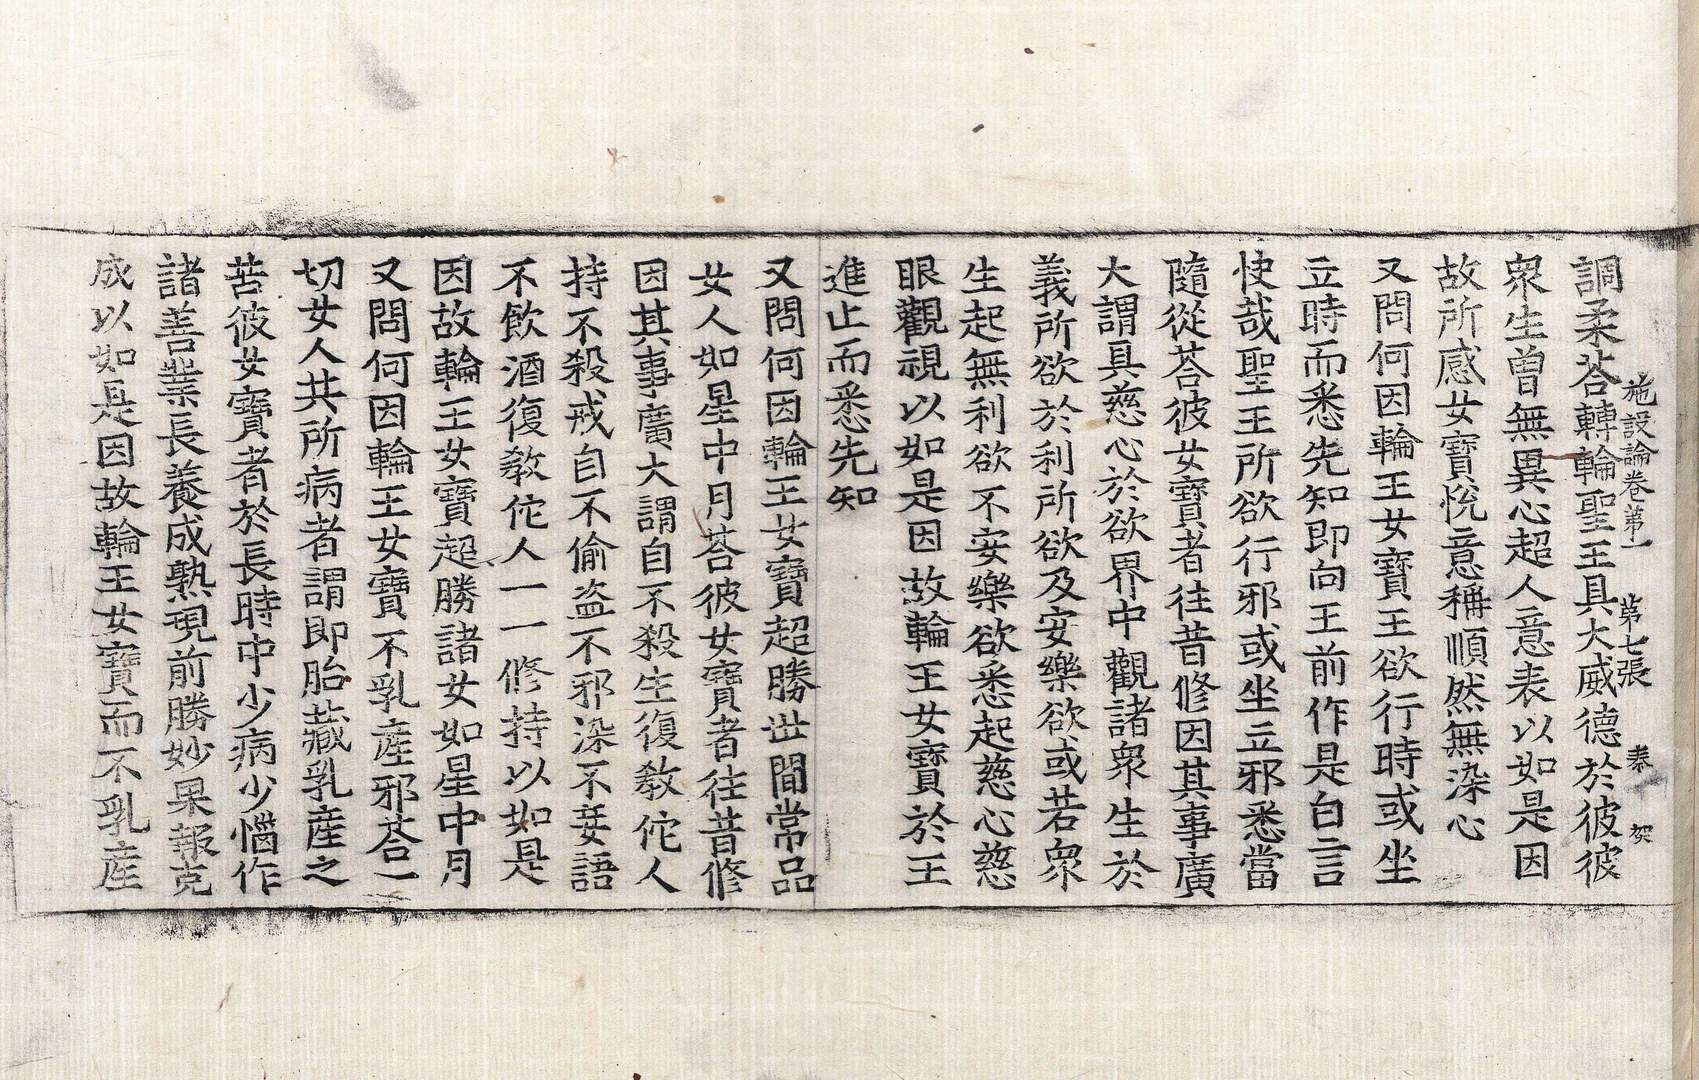 施設論卷第一　第七張　
調柔荅轉輪聖王具大威德於彼彼
衆生曾無異心超人意表以如是因
故所感女寶悅意稱順然無染心
又問何因輪王女寶王欲行時或坐
立時而悉先知即向王前作是白言
快哉聖王所欲行邪或坐立邪悉當
隨從荅彼女寶者往昔修因其事廣
大謂具慈心於欲界中觀諸衆生於
義所欲於利所欲及安樂欲或若衆
生起無利欲不安樂欲悉起慈心慈
眼觀視以如是因故輪王女寶於王
進止而悉先知
又問何因輪王女寶超勝世間常品
女人如星中月荅彼女寶者往昔修
因其事廣大謂自不殺生復教佗人
持不殺戒自不偷盗不邪染不妄語
不飲酒復教佗人一一修持以如是
因故輪王女寶超勝諸女如星中月
又問何因輪王女寶不乳產邪荅一
切女人共所病者謂即胎藏乳產之
苦彼女寶者於長時中少病少惱作
諸善業長養成熟現前勝妙果報克
成以如是因故輪王女寶而不乳產